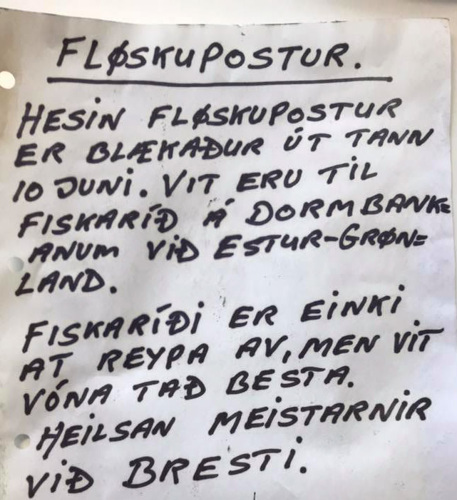 FLØSKUPOSTUR.
HESIN FLØSKUPOSTUR
ER BLÆKAÐUR ÚT TANN
10 JUNI. VIT ERU TIL
FISKARÍÐ Á DORMBANK=
ANUM VIÐ ESTUR-GRØN=
LAND.
FISKARÍÐI ER EINKI
AT REYPA AV, MEN VIT
VÓNA TAÐ BESTA.
HEILSAN MEISTARNIR
VIÐ BRESTI.